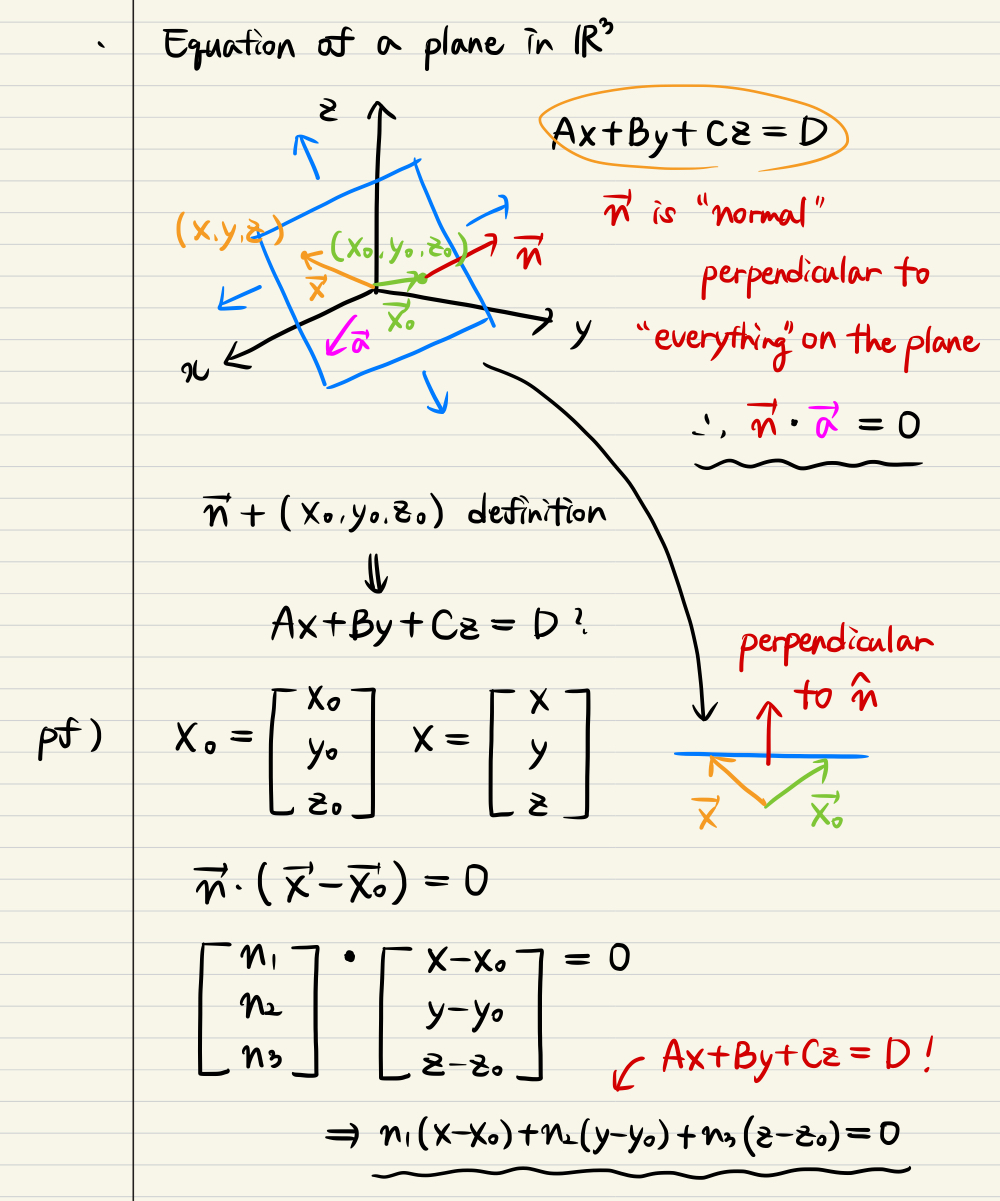 · Equation of a plane in ℝ³
z
Ax+By+Cz = D
(x,y,z)
(x₀,y₀,z₀)
n⃗
x⃗
x⃗₀
a⃗
y
x
n⃗ is "normal"
perpendicular to
"everything" on the plane
∴ n⃗ · a⃗ = 0
n⃗ + (x₀,y₀,z₀) definition
⇓
Ax+By+Cz = D?
perpendicular
to n̂
pf) X₀ = [x₀ y₀ z₀] X = [x y z]
x⃗ x⃗₀
n⃗ · (x⃗ - x⃗₀) = 0
[n₁ n₂ n₃] · [x-x₀ y-y₀ z-z₀] = 0
Ax+By+Cz = D!
⇒ n₁(x-x₀)+n₂(y-y₀)+n₃(z-z₀)=0